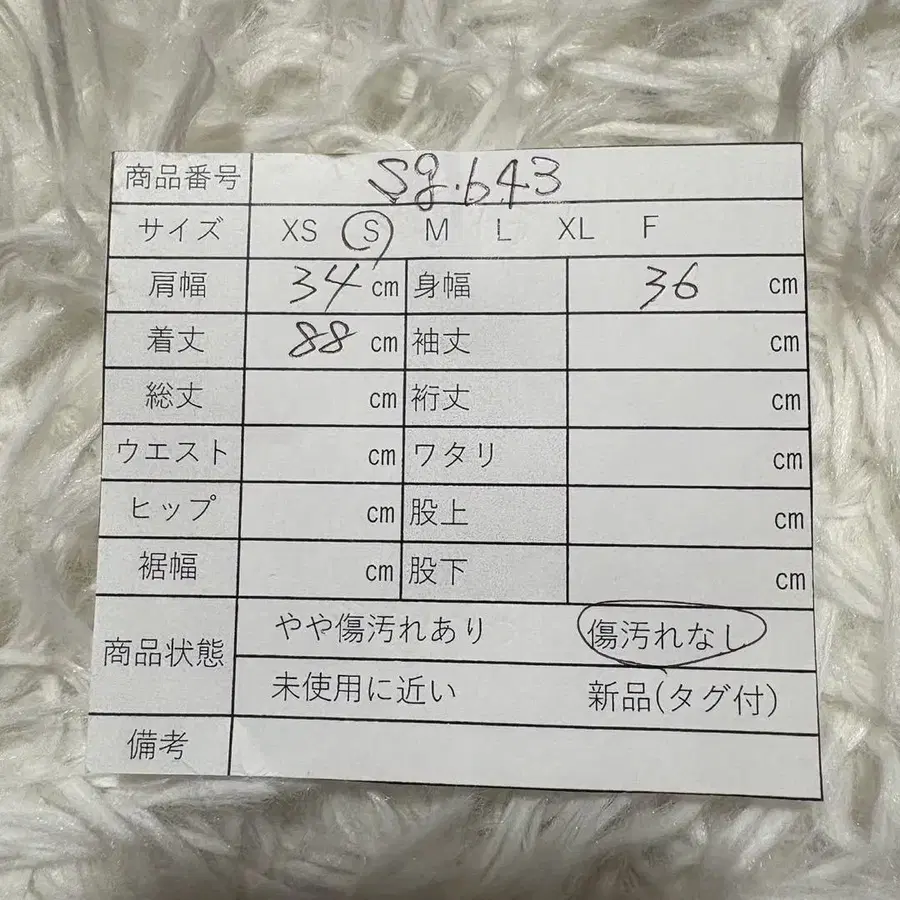 商品番号 sg.643
サイズ XS S M L XL F
肩幅 34 cm 身幅 36 cm
着丈 88 cm 袖丈 cm
総丈 cm 裄丈 cm
ウエスト cm ワタリ cm
ヒップ cm 股上 cm
裾幅 cm 股下 cm
商品状態 やや傷汚れあり 傷汚れなし
未使用に近い 新品(タグ付)
備考